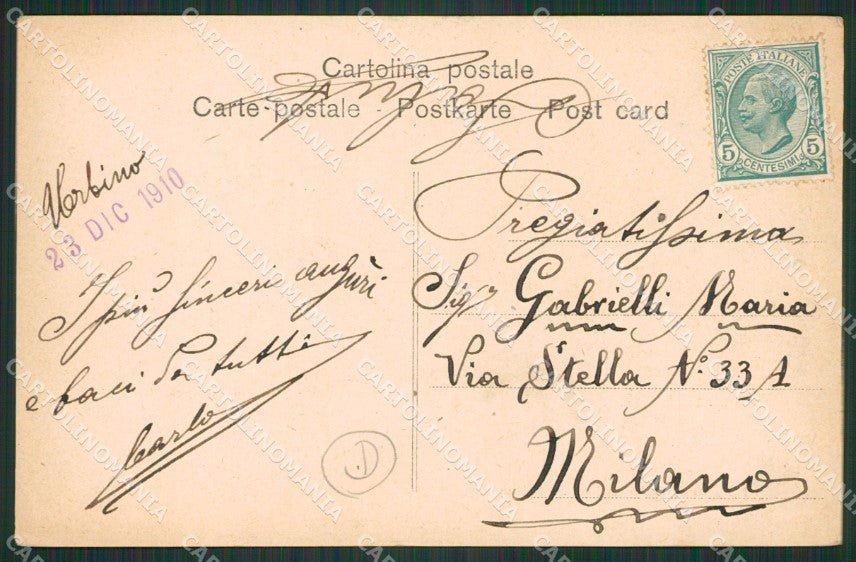 Cartolina postale
Carte postale Postkarte Post card
POSTE ITALIANE
5 CENTESIMI 5
Urbino
23 DIC 1910
I più sinceri auguri
e baci da tutti
Carlo
D
Pregiatissima
Sigª Gabrielli Maria
Via Stella Nº 33 A
Milano
CARTOLINOMANIA